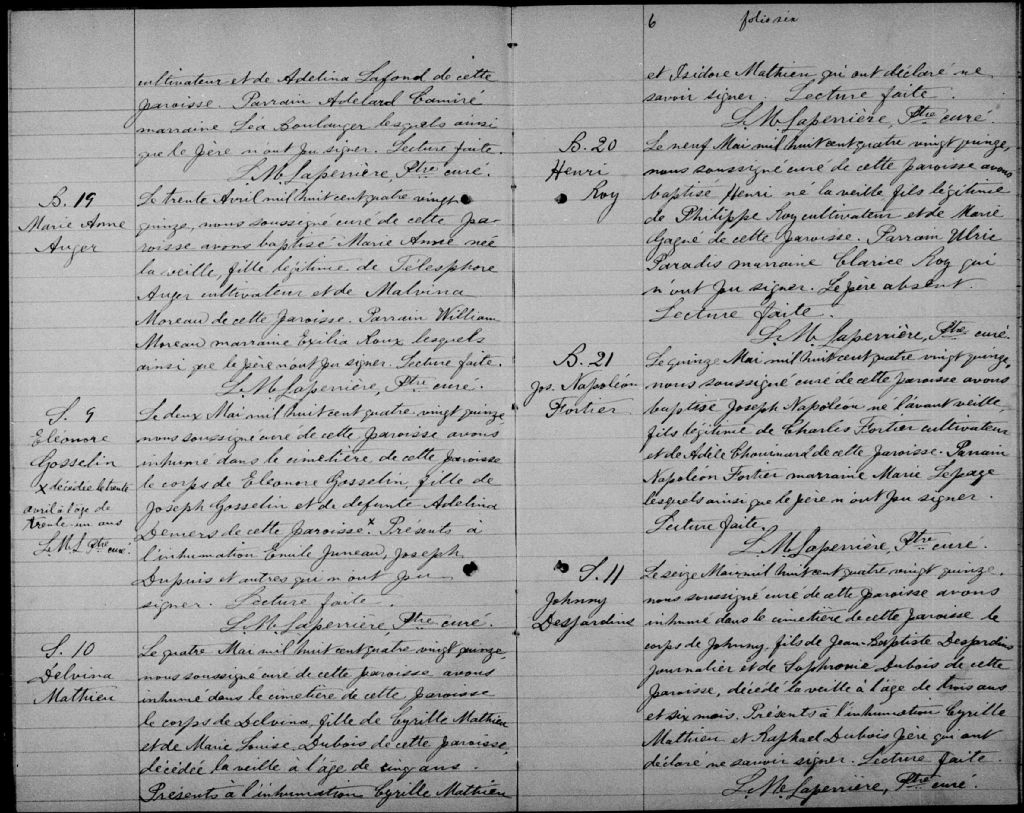 cultivateur et de Adelina Lafond de cette
paroisse. Parrain Adelard Camiré
marraine Léa Boulanger lesquels ainsi
que le père n'ont pu signer. Lecture faite.
L. M. Laperrière, Ptre curé.
B. 19
Marie Anne
Auger
Le trente Avril mil huit cent quatre vingt
quinze, nous soussigné curé de cette pa-
roisse avons baptisé Marie Anne née
la veille, fille légitime de Télesphore
Auger cultivateur et de Malvina
Moreau de cette paroisse. Parrain William
Moreau marraine Exilia Roux lesquels
ainsi que le père n'ont pu signer. Lecture faite.
L. M. Laperrière, Ptre curé.
S. 9
Eléonore
Gosselin
x décédée le trente
avril à l'âge de
trente-un ans
L. M. L Ptre curé.
Le deux Mai mil huit cent quatre vingt quinze,
nous soussigné curé de cette paroisse avons
inhumé dans le cimetière de cette paroisse
le corps de Eleonore Gosselin, fille de
Joseph Gosselin et de defunte Adelina
Demers de cette paroisse x. Présents à
l'inhumation Emile Juneau, Joseph
Dupuis et autres qui n'ont pu
signer. Lecture faite.
L. M. Laperrière, Ptre curé.
S. 10
Delvina
Mathieu
Le quatre Mai mil huit cent quatre vingt quinze,
nous soussigné curé de cette paroisse avons
inhumé dans le cimetière de cette paroisse
le corps de Delvina, fille de Cyrille Mathieu
et de Marie Louise Dubois de cette paroisse,
décédée la veille à l'âge de cinq ans.
Présents à l'inhumation Cyrille Mathieu
6 folio six
et Isidore Mathieu qui ont déclaré ne
savoir signer. Lecture faite.
L. M. Laperrière, Ptre curé.
B. 20
Henri
Roy
Le neuf Mai mil huit cent quatre vingt quinze,
nous soussigné curé de cette paroisse avons
baptisé Henri né la veille fils légitime
de Philippe Roy cultivateur et de Marie
Gagné de cette paroisse. Parrain Ulric
Paradis marraine Clarice Roy qui
n'ont pu signer. Le père absent.
Lecture faite.
L. M. Laperrière, Ptre curé.
B. 21
Jos. Napoléon
Fortier
Le quinze Mai mil huit cent quatre vingt quinze,
nous soussigné curé de cette paroisse avons
baptisé Joseph Napoléon né l'avant veille,
fils légitime de Charles Fortier cultivateur
et de Adèle Chouinard de cette paroisse. Parrain
Napoléon Fortier marraine Marie Lepage
lesquels ainsi que le père n'ont pu signer.
Lecture faite.
L. M. Laperrière, Ptre curé.
S. 11
Johnny
Desjardins
Le seize Mai mil huit cent quatre vingt quinze.
nous soussigné curé de cette paroisse avons
inhumé dans le cimetière de cette paroisse le
corps de Johnny, fils de Jean-Baptiste Desjardins
journalier et de Sophronie Dubois de cette
paroisse, décédé la veille à l'âge de trois ans
et six mois. Présents à l'inhumation Cyrille
Mathieu et Raphael Dubois père qui ont
déclaré ne savoir signer. Lecture faite.
L. M. Laperrière, Ptre curé.